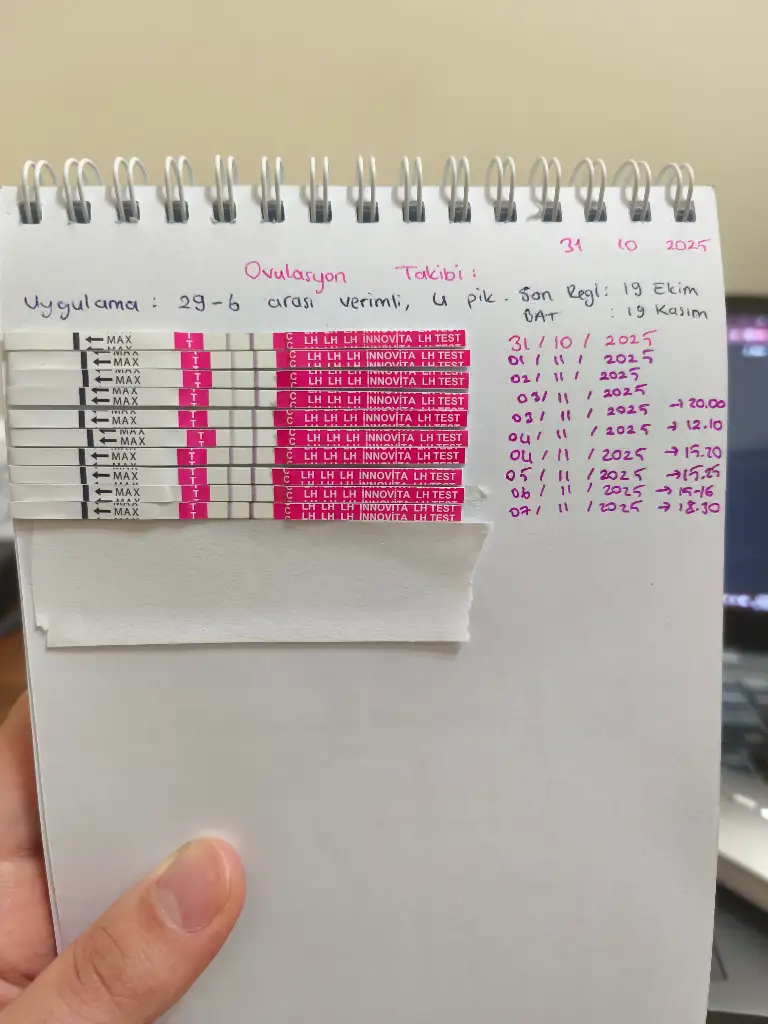 31 10 2025
Ovulasyon Takibi :
Uygulama : 29-6 arası verimli, 4 pik. Son Regl : 19 Ekim
BAT : 19 Kasım
← MAX T C LH LH LH İNNOVİTA LH TEST 31 / 10 / 2025
← MAX T C LH LH LH İNNOVİTA LH TEST 01 / 11 / 2025
← MAX T C LH LH LH İNNOVİTA LH TEST 02 / 11 / 2025
← MAX T C LH LH LH İNNOVİTA LH TEST 03 / 11 / 2025
← MAX T C LH LH LH İNNOVİTA LH TEST 03 / 11 / 2025 → 20.00
← MAX T C LH LH LH İNNOVİTA LH TEST 04 / 11 / 2025 → 12.10
← MAX T C LH LH LH İNNOVİTA LH TEST 04 / 11 / 2025 → 15.20
← MAX T C LH LH LH İNNOVİTA LH TEST 05 / 11 / 2025 → 15.25
← MAX T C LH LH LH İNNOVİTA LH TEST 06 / 11 / 2025 → 15-16
← MAX T C LH LH LH İNNOVİTA LH TEST 07 / 11 / 2025 → 18.30